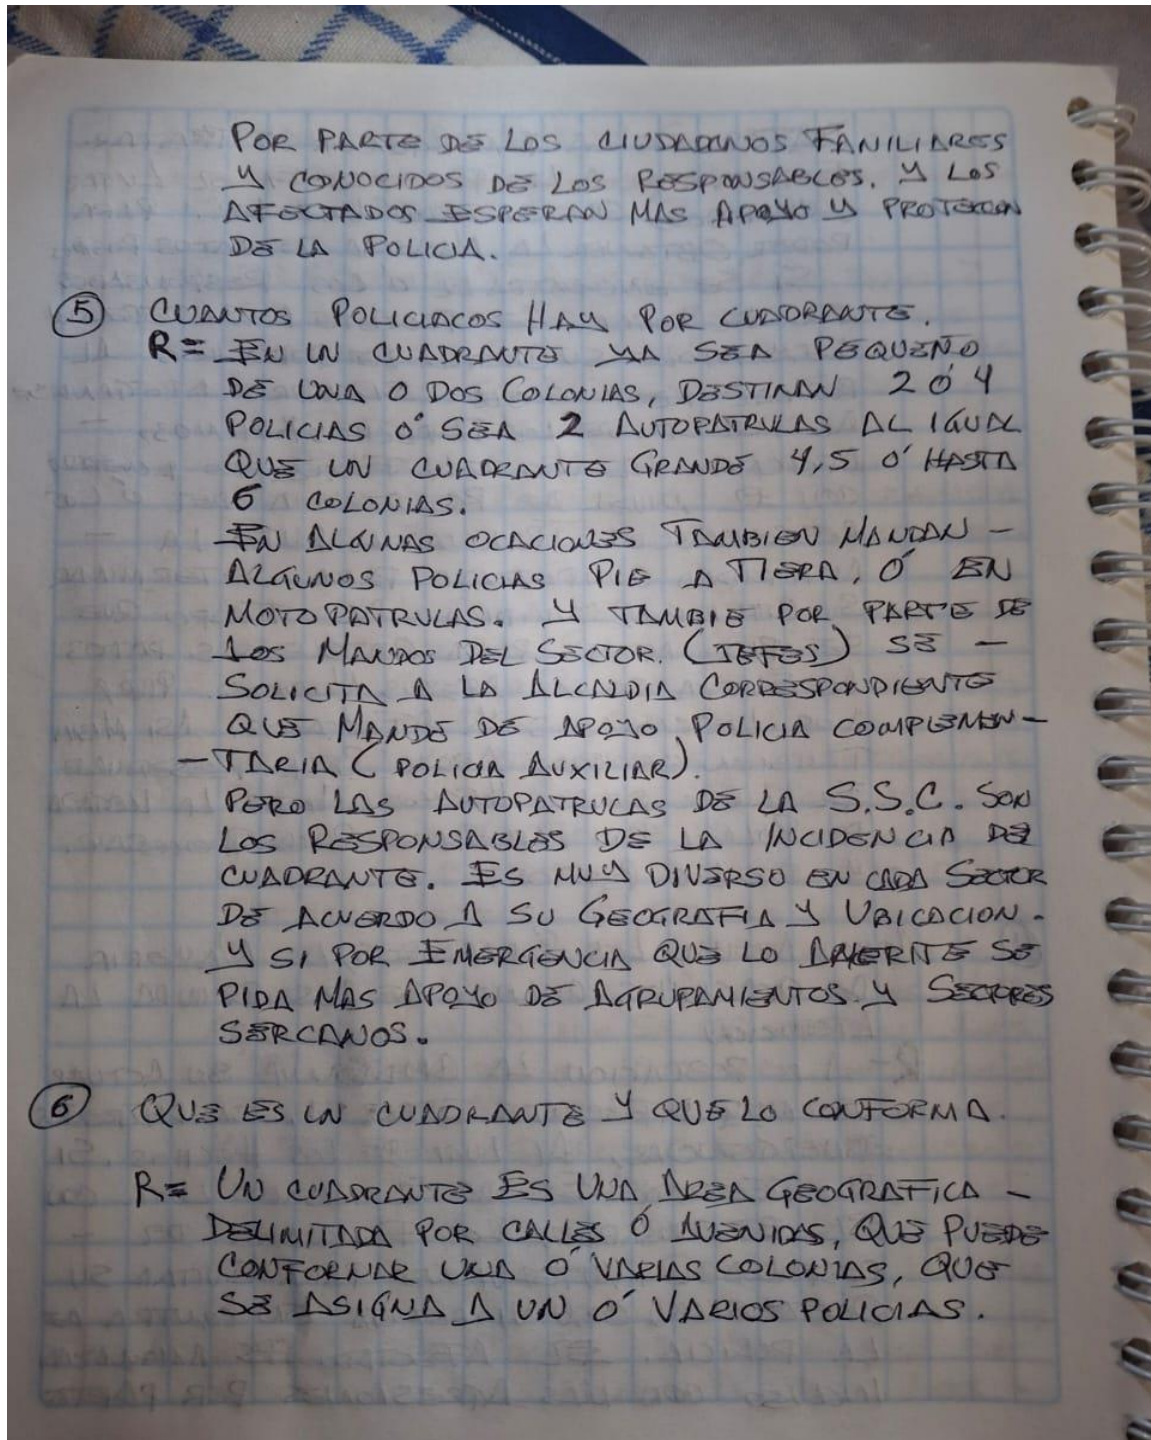 POR PARTE DE LOS CIUDADANOS FANILIARES
Y CONOCIDOS DE LOS RESPONSABLES. Y LOS
AFECTADOS ESPERAN MAS APOYO Y PROTECCION
DE LA POLICIA.
5 CUANTOS POLICIACOS HAY POR CUADRANTE.
R= EN UN CUADRANTE YA SEA PEQUEÑO
DE UNA O DOS COLONIAS, DESTINAN 2 Ó 4
POLICIAS Ó SEA 2 AUTOPATRULAS AL IGUAL
QUE UN CUADRANTE GRANDE 4,5 Ó HASTA
6 COLONIAS.
EN ALGUNAS OCACIONES TAMBIEN MANDAN -
ALGUNOS POLICIAS PIE A TIERA, Ó EN
MOTOPATRULAS. Y TAMBIE POR PARTE DE
LOS MANDOS DEL SECTOR. (JEFES) SE -
SOLICITA A LA ALCALDIA CORRESPONDIENTE
QUE MANDE DE APOYO POLICIA COMPLEMEN-
-TARIA (POLICIA AUXILIAR).
PERO LAS AUTOPATRULAS DE LA S.S.C. SON
LOS RESPONSABLES DE LA INCIDENCIA DEL
CUADRANTE. ES MUY DIVERSO EN CADA SECTOR
DE ACUERDO A SU GEOGRAFIA Y UBICACION.
Y SI POR EMERGENCIA QUE LO AMERITE SE
PIDA MAS APOYO DE AGRUPAMIENTOS. Y SECTORES
SERCANOS.
6 QUE ES UN CUADRANTE Y QUE LO CONFORMA.
R= UN CUADRANTE ES UNA AREA GEOGRAFICA -
DELIMITADA POR CALLES Ó AVENIDAS, QUE PUEDE
CONFORMAR UNA Ó VARIAS COLONIAS, QUE
SE ASIGNA A UN Ó VARIOS POLICIAS.